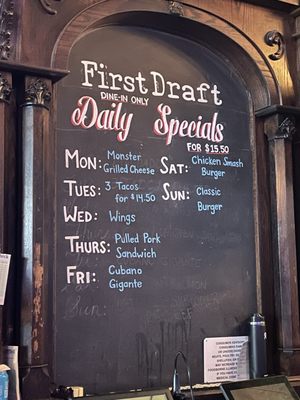 First Draft
DINE-IN ONLY
Daily Specials
FOR $15.50
MON: Monster
Grilled Cheese
TUES: 3 Tacos
for $14.50
WED: Wings
THURS: Pulled Pork
Sandwich
FRI: Cubano
Gigante
SAT: Chicken Smash
Burger
SUN: Classic
Burger
CONSUMER ADVISORY: